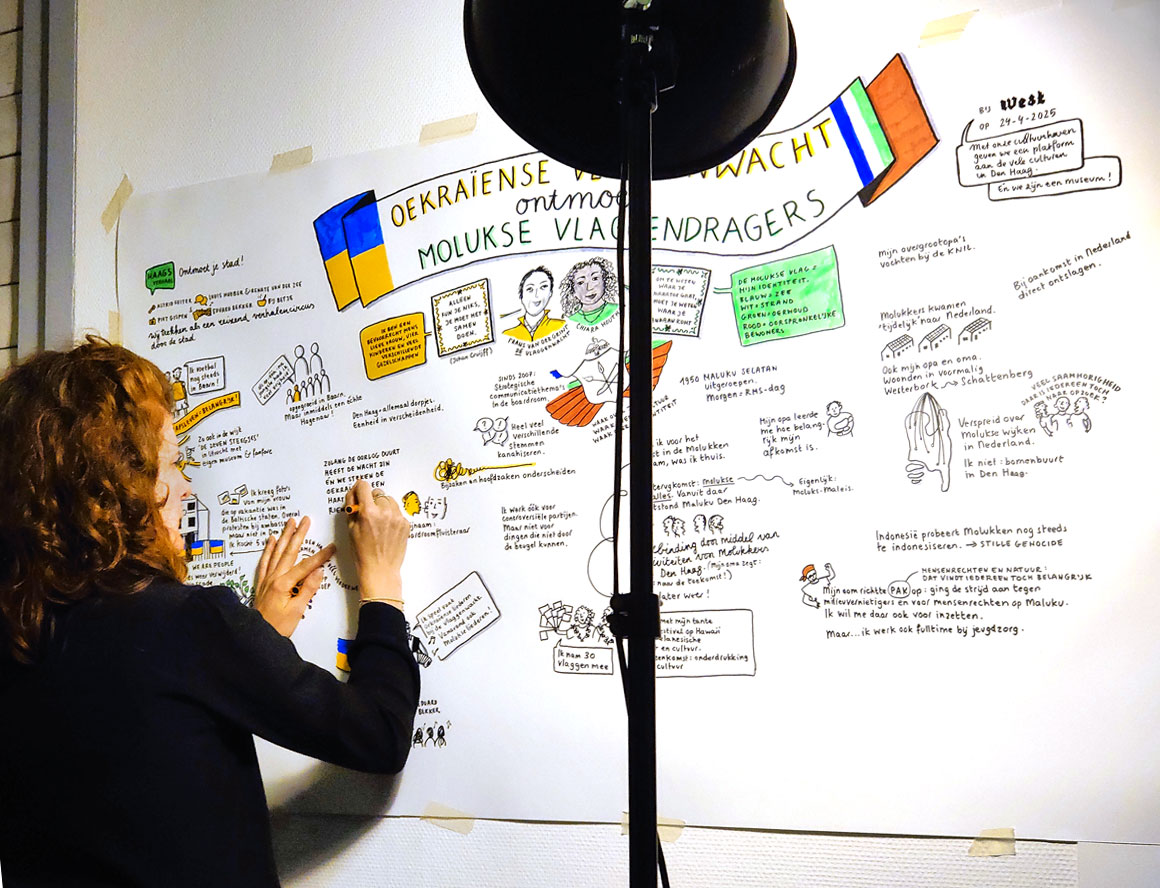 OEKRAÏENSE V ENWACHT
ontmoe
MOLUKSE VLAGGENDRAGERS
BIJ West
OP 24-4-2025
Met onze cultuurhaven
geven we een platform
aan de vele culturen
in Den Haag.
En we zijn een museum!
HAAGS
VERHAAL
Ontmoet je stad!
Wij trekken als een reizend verhalencircus
door de stad.
IK BEN EEN
BEVOORRECHT MENS
LIEVE VROUW, VIER
KINDEREN EN VEEL
VERSCHILLENDE
GEZELSCHAPPEN
ALLEEN
KUN JE NIKS,
JE MOET HET
SAMEN
DOEN.
(Johan Cruijff)
FRANS VAN DER GRINT
DE VLAGGENWACHT
CHIARA
OM TE WETEN
WAAR JE
NAARTOE GAAT,
MOET JE WETEN
WAAR JE
VANDAAN KOMT
DE MOLUKSE VLAG =
MIJN IDENTITEIT.
BLAUW = ZEE
WIT = STRAND
GROEN = OERWOUD
ROOD = OORSPRONKELIJKE
BEWONERS
Ik voetbal
nog steeds
in Baarn!
opgegroeid in Baarn.
Maar inmiddels een echte
Hagenaar!
Den Haag = allemaal dorpjes.
Eenheid in verscheidenheid.
SINDS 2007:
Strategische
communicatiethema's
in de boardroom.
Heel veel
verschillende
stemmen
kanaliseren.
Bijzaken en hoofdzaken onderscheiden
Zo ook in de wijk
'DE ZEVEN STEEGJES'
in Utrecht met
eigen museum & fanfare
Ik kreeg foto's
van mijn vrouw
die op vakantie was in
de Baltische staten. Overal
protesten bij ambassa
maar niet in Den
Ik kocht 5 v
WE ARE PEOPLE
ZOLANG DE OORLOG DUURT
HEEFT DE WACHT ZIN
EN WE STEKEN DE
OEKRA EEN
HART
RIE
naam:
oardroomfluisteraar
Ik werk óók voor
controversiële partijen.
Maar niet voor
dingen die niet door
de beugel kunnen.
Ik speel vaak
Oekraïense liederen
bij de vlaggenwacht
Vanavond ook
Molukse liederen!
DUARD
EKKER
Ik nam 30
vlaggen mee
1950 MALUKU SELATAN
uitgeroepen.
Morgen = RMS-dag
Mijn opa leerde
me hoe belang-
rijk mijn
afkomst is.
ik voor het
st in de Molukken
am, was ik thuis.
tervgkomst: molukse
alles. Vanuit daar
tstond Maluku Den Haag.
Eigenlijk:
Moloks-Maleis.
binding door middel van
iviteiten van Molukkers
Den Haag. (Mijn oma zegt:
naar de toekomst!)
later wee!
met mijn tante
estival op Hawaii
elanesische
en cultuur.
enkomst: onderdrukking
cultuur
Mijn overgrootopa's
vochten bij de KNIL.
Bij aankomst in Nederland
direct ontslagen.
Molukkers kwamen
tijdelijk naar Nederland.
Ook mijn opa en oma.
Woonden in voormalig
Westerbork → Schattenberg
VEEL SAAMHORIGHEID
DAAR IS IEDEREEN TOCH
NAAR OP ZOEK?
Verspreid over
Molukse wijken
in Nederland.
Ik niet: bomenbuurt
in Den Haag.
Indonesië probeert Molukken nog steeds
te indonesiseren. → STILLE GENOCIDE
MENSENRECHTEN EN NATUUR:
DAT VINDT IEDEREEN TOCH BELANGRIJK
Mijn oom richtte PAK op: ging de strijd aan tegen
milieuvernietigers en voor mensenrechten op Maluku.
Ik wil me daar ook voor inzetten.
Maar... ik werk ook fulltime bij jeugdzorg.